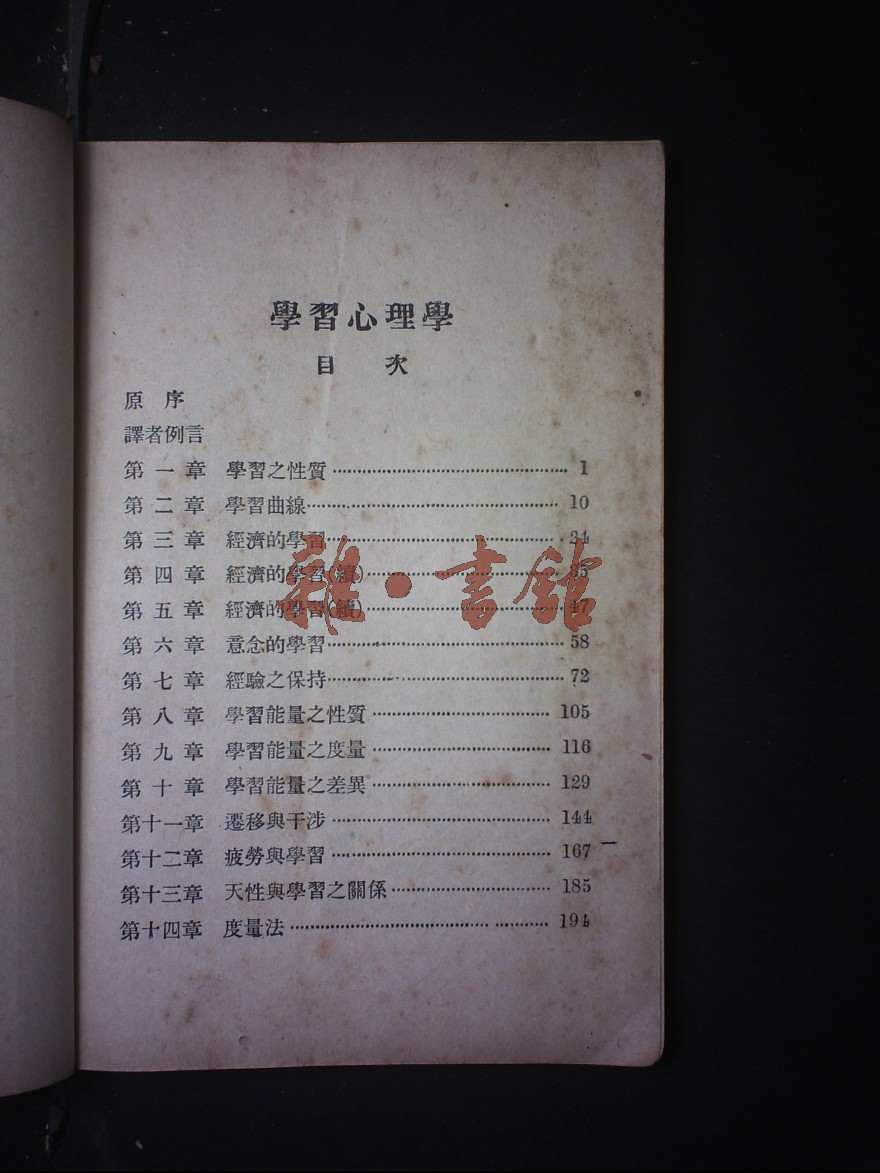 學習心理學
目 次
原 序
譯者例言
第 一 章 學習之性質 1
第 二 章 學習曲線 10
第 三 章 經濟的學習 24
第 四 章 經濟的學習(續) 35
第 五 章 經濟的學習(續) 47
第 六 章 意念的學習 58
第 七 章 經驗之保持 72
第 八 章 學習能量之性質 105
第 九 章 學習能量之度量 116
第 十 章 學習能量之差異 129
第十一章 遷移與干涉 144
第十二章 疲勞與學習 167
第十三章 天性與學習之關係 185
第十四章 度量法 194
雜·書館